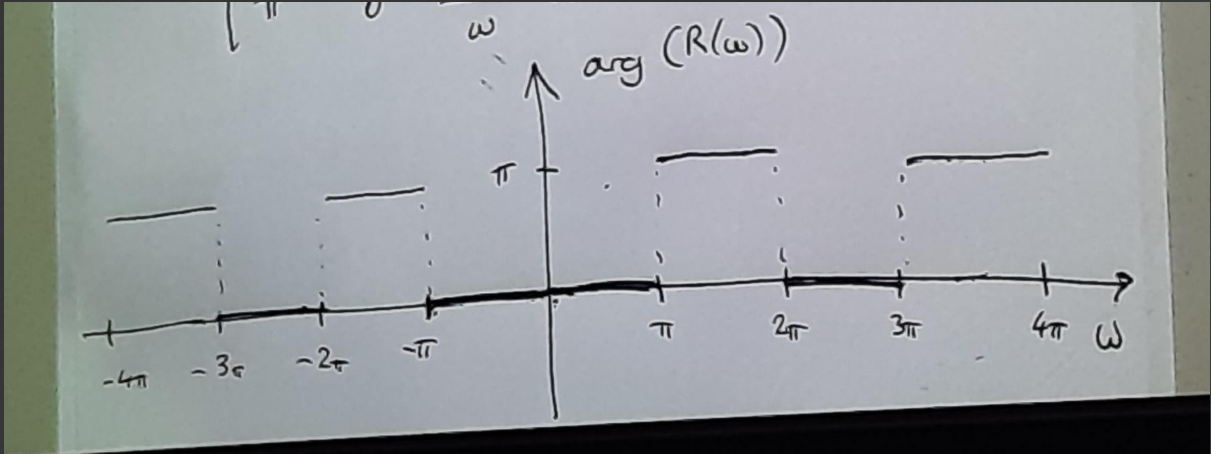 π
ω
arg (R(ω))
π
-4π -3π -2π -π π 2π 3π 4π ω